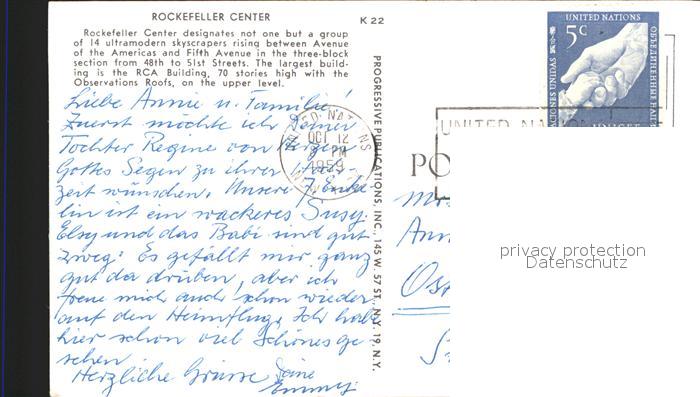 ROCKEFELLER CENTER
K 22
Rockefeller Center designates not one but a group
of 14 ultramodern skyscrapers rising between Avenue
of the Americas and Fifth Avenue in the three-block
section from 48th to 51st Streets. The largest build-
ing is the RCA Building, 70 stories high with the
Observations Roofs, on the upper level.
Liebe Annie u. Familie!
Zuerst möchte ich Deiner
Tochter Regine von Herzen
Gottes Segen zu ihrer
zeit wünschen. Unsere
lin ist ein wackeres Susy.
Elsy und das Babi sind gut
zweg. Es gefällt mir ganz
gut da drüben, aber ich
freue mich auch schon wieder
auf den Heimflug. Ich habe
hier schon viel Schönes ge-
sehen.
Herzliche Grüsse Deine
Emmy
PROGRESSIVE PUBLICATIONS, INC., 145 W. 57 ST., N.Y. 19, N.Y.
UNITED NATIONS
OCT 12
PM
1959
UNITED NATIONS
5c
NACIONES UNIDAS
ОБЪЕДИНЕННЫЕ НАЦИИ
UNITED NATIONS
PO
privacy protection
Datenschutz